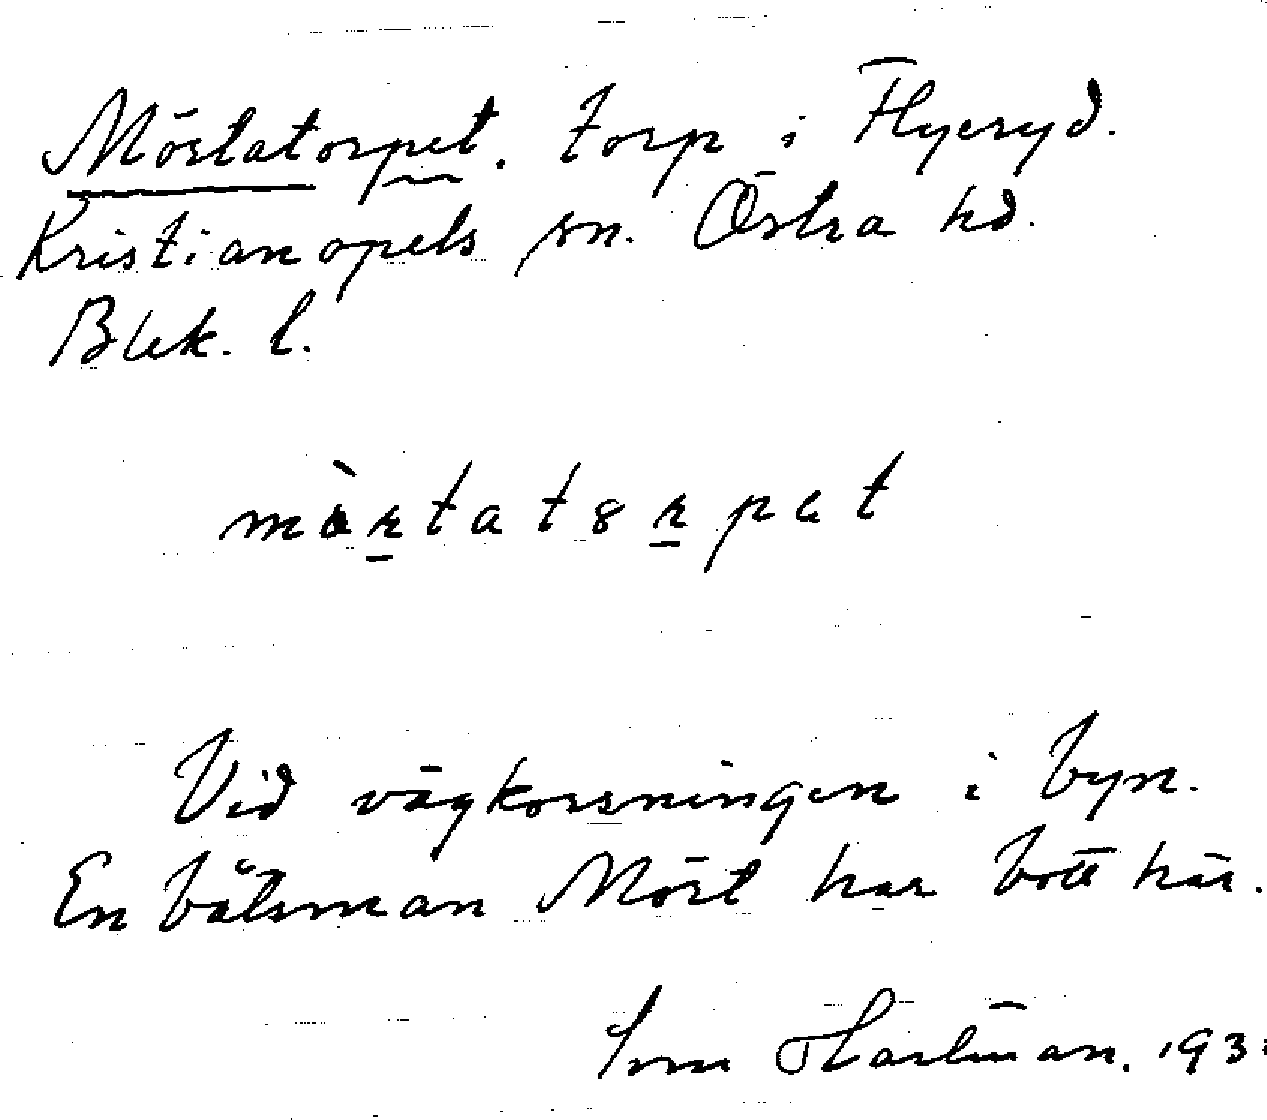 Mörtatorpet. torp i Flyeryd.
Kristianopels sn. Östra hd.
Blek. l.
mörtatorpet
Vid vägkorsningen i byn.
En båtsman Mört har bott här.
Hartman. 193